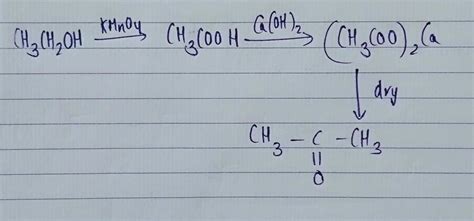 CH3CH2OH KMnO4 CH3COOH Ca(OH)2 (CH3COO)2Ca
dry
CH3 - C - CH3
||
O